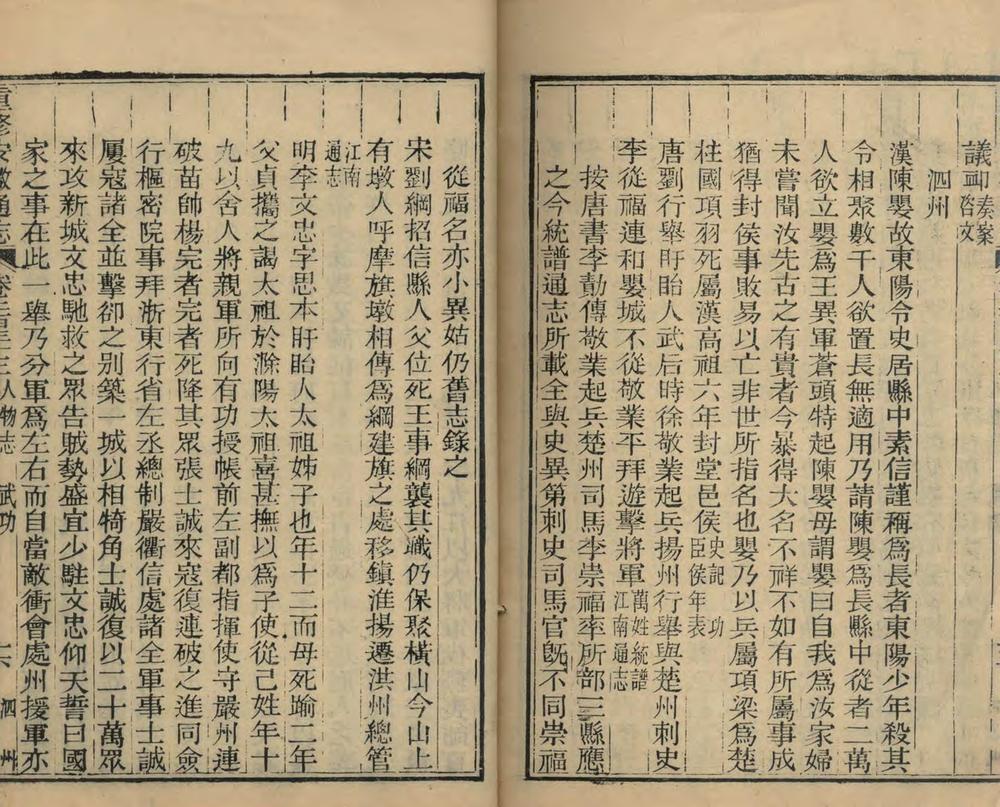 議叩奏案咨文
泗州
漢陳嬰故東陽令史居縣中素信謹稱爲長者東陽少年殺其
令相聚數千人欲置長無適用乃請陳嬰爲長縣中從者二萬
人欲立嬰爲王異軍蒼頭特起陳嬰母謂嬰曰自我爲汝家婦
未嘗聞汝先古之有貴者今暴得大名不祥不如有所屬事成
猶得封侯事敗易以亡非世所指名也嬰乃以兵屬項梁爲楚
柱國項羽死屬漢高祖六年封堂邑侯史記功臣侯年表
唐劉行舉盱眙人武后時徐敬業起兵揚州行舉與楚州刺史
李從福連和嬰城不從敬業平拜遊擊將軍萬姓統譜江南通志
按唐書李勣傳敬業起兵楚州司馬李崇福率所部三縣應
之今統譜通志所載全與史異第刺史司馬官旣不同崇福
從福名亦小異姑仍舊志錄之
宋劉綱招信縣人父位死王事綱襲其職仍保聚橫山今山上
有墩人呼摩旗墩相傳爲綱建旗之處移鎮淮揚遷洪州總管
江南通志
明李文忠字思本盱眙人太祖姊子也年十二而母死踰二年
父貞攜之謁太祖於滁陽太祖喜甚撫以爲子使從己姓年十
九以舍人將親軍所向有功授帳前左副都指揮使守嚴州連
破苗帥楊完者完者死降其眾張士誠來寇復連破之進同僉
行樞密院事拜浙東行省左丞總制嚴衢信處諸全軍事士誠
屢寇諸全並擊卻之別築一城以相犄角士誠復以二十萬眾
來攻新城文忠馳救之眾告賊勢盛宜少駐文忠仰天誓曰國
家之事在此一舉乃分軍爲左右而自當敵衝會處州援軍亦
重修安徽通志 人物志 武功 泗州